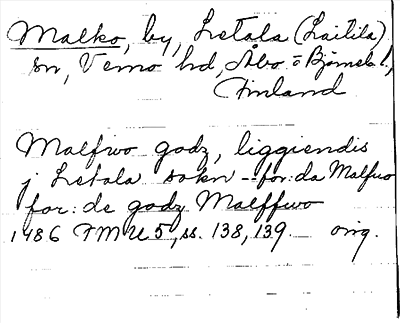 Malko, by, Letala (Laitila)
sn, Vemo hd, Åbo o Björneb l.,
Finland
Malfwo godz, liggiendis
j Letala sokn - for: da Malfwo
for: de godz Malffwo
1486 FMU 5, ss. 138, 139. orig.